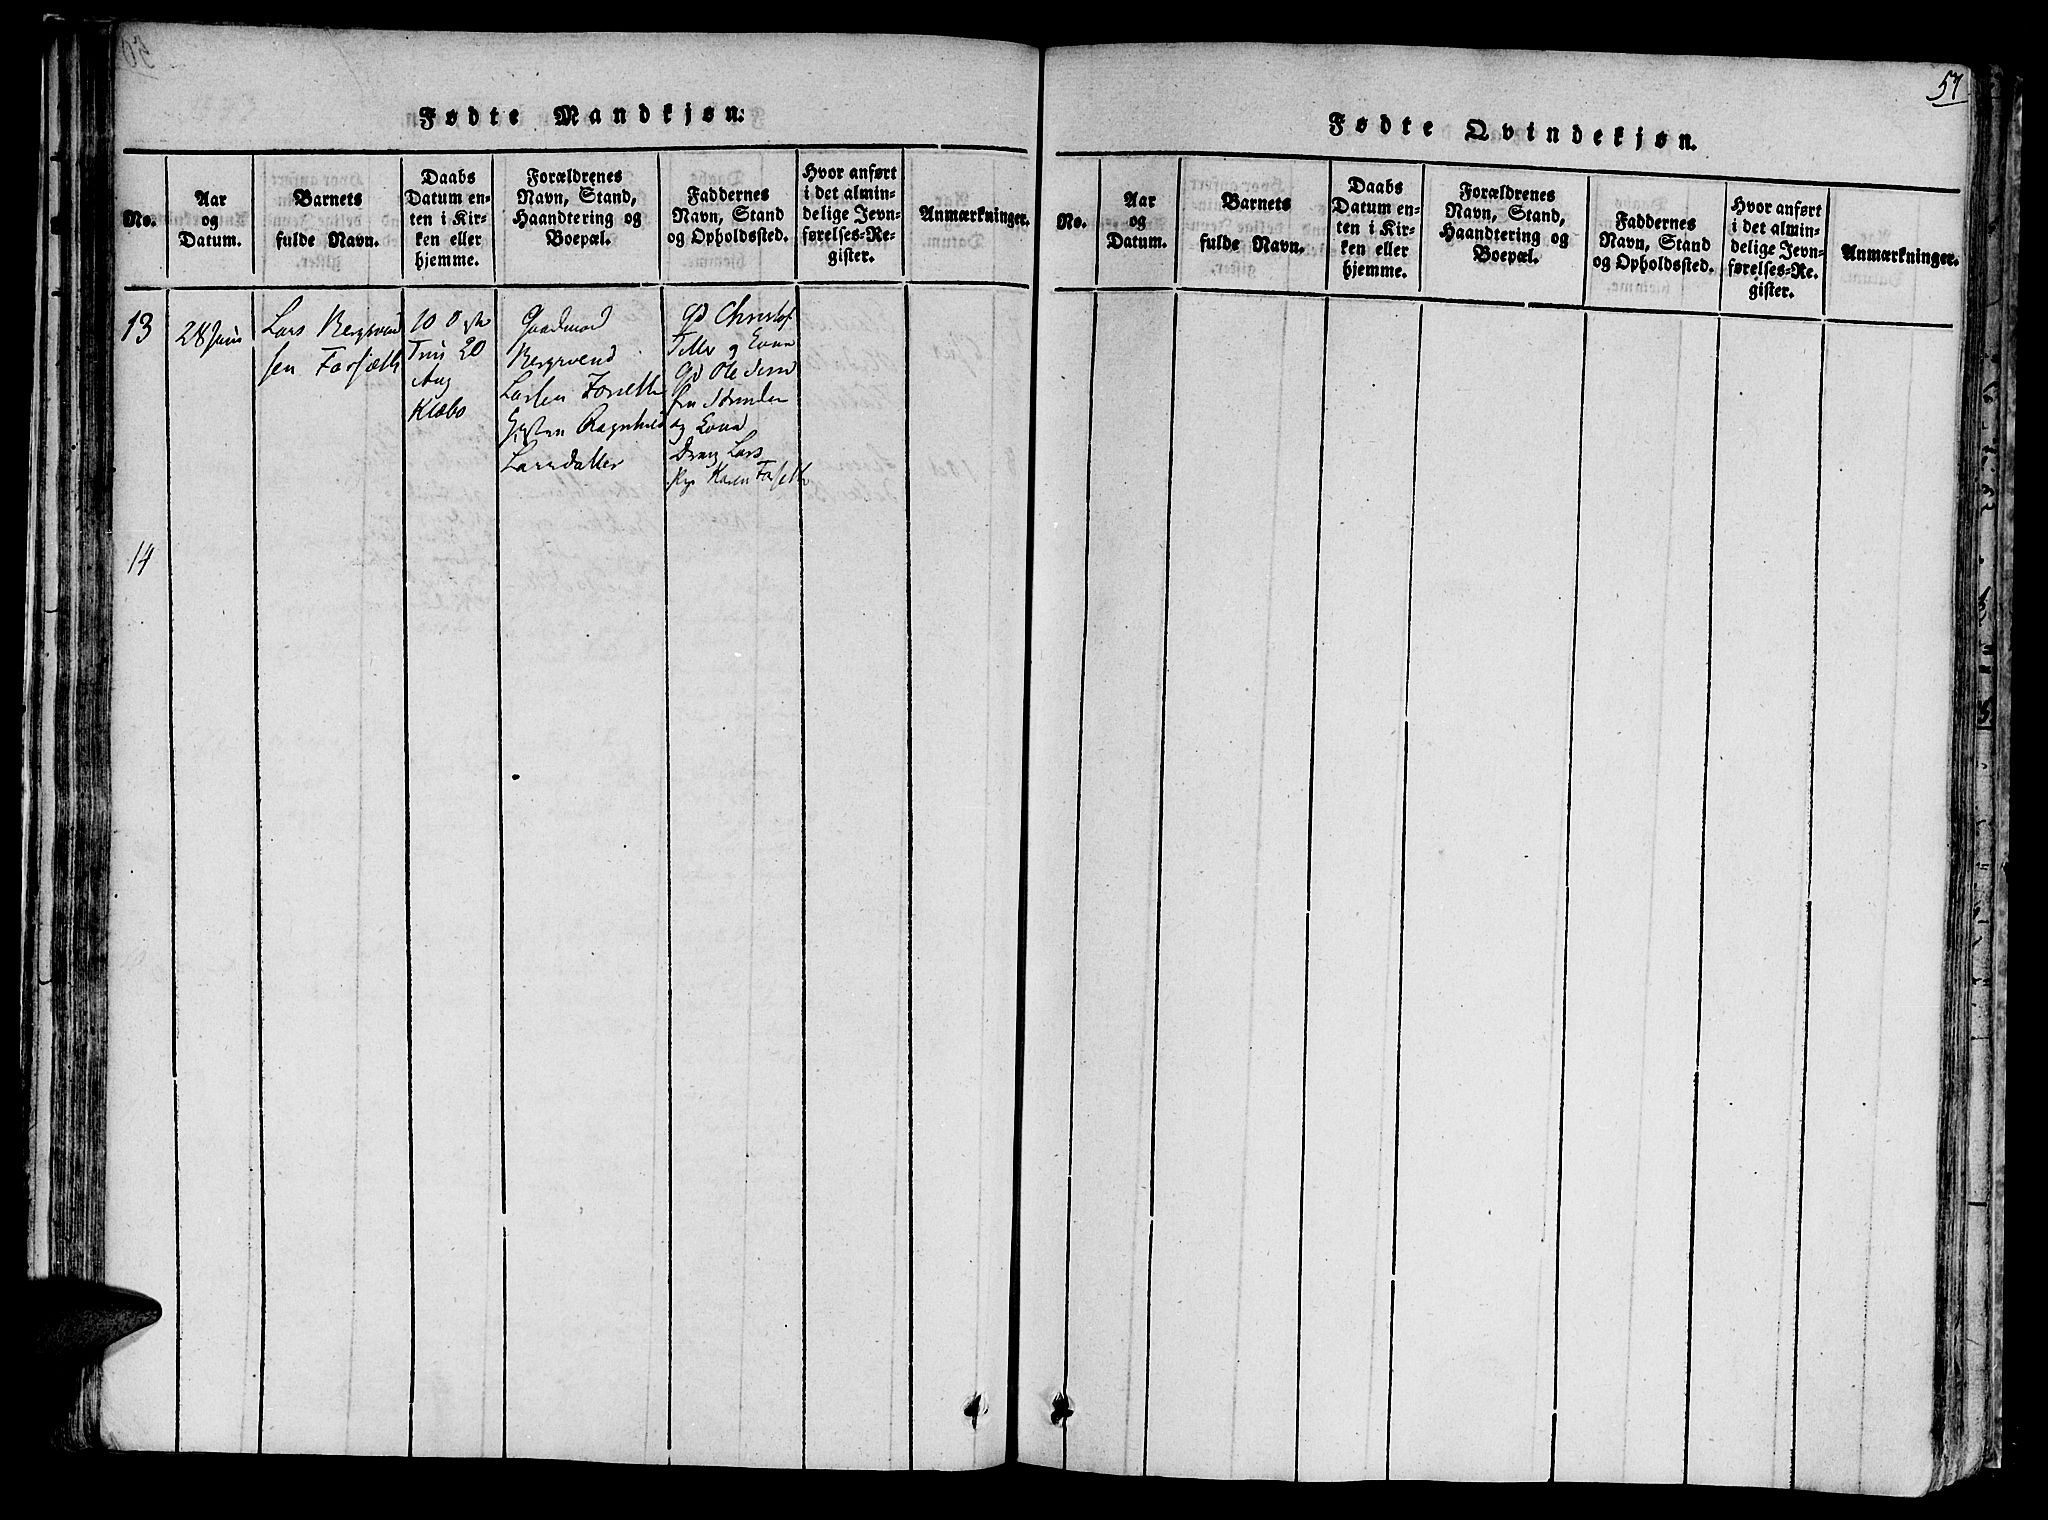 57
Fødte Mandkjøn:
No.
Aar
og
Datum.
Barnets
fulde Navn.
Daabs
Datum en-
ten i Kir-
ken eller
hjemme.
Forældrenes
Navn, Stand,
Haandtering og
Boepæl.
Faddernes
Navn, Stand
og Opholdssted.
Hvor anført
i det almin-
delige Jevn-
førelses-Re-
gister.
Anmærkninger.
13
28 Juni
Lars Bergsvend
sen Forsæth
10 O
Trin 20
Aug
Klæbo
Gaadmand
Bergsvend
Larsen Forseth
Ragnhild
Larsdatter
Gd Christof
Tiller og Kona
Gd Ole
og Kona
Dreng Lars
Pige Karen Forseth
14
Fødte Qvindekjøn.
No.
Aar
og
Datum.
Barnets
fulde Navn.
Daabs
Datum en-
ten i Kir-
ken eller
hjemme.
Forældrenes
Navn, Stand,
Haandtering og
Boepæl.
Faddernes
Navn, Stand
og Opholdssted.
Hvor anført
i det almin-
delige Jevn-
førelses-Re-
gister.
Anmærkninger.